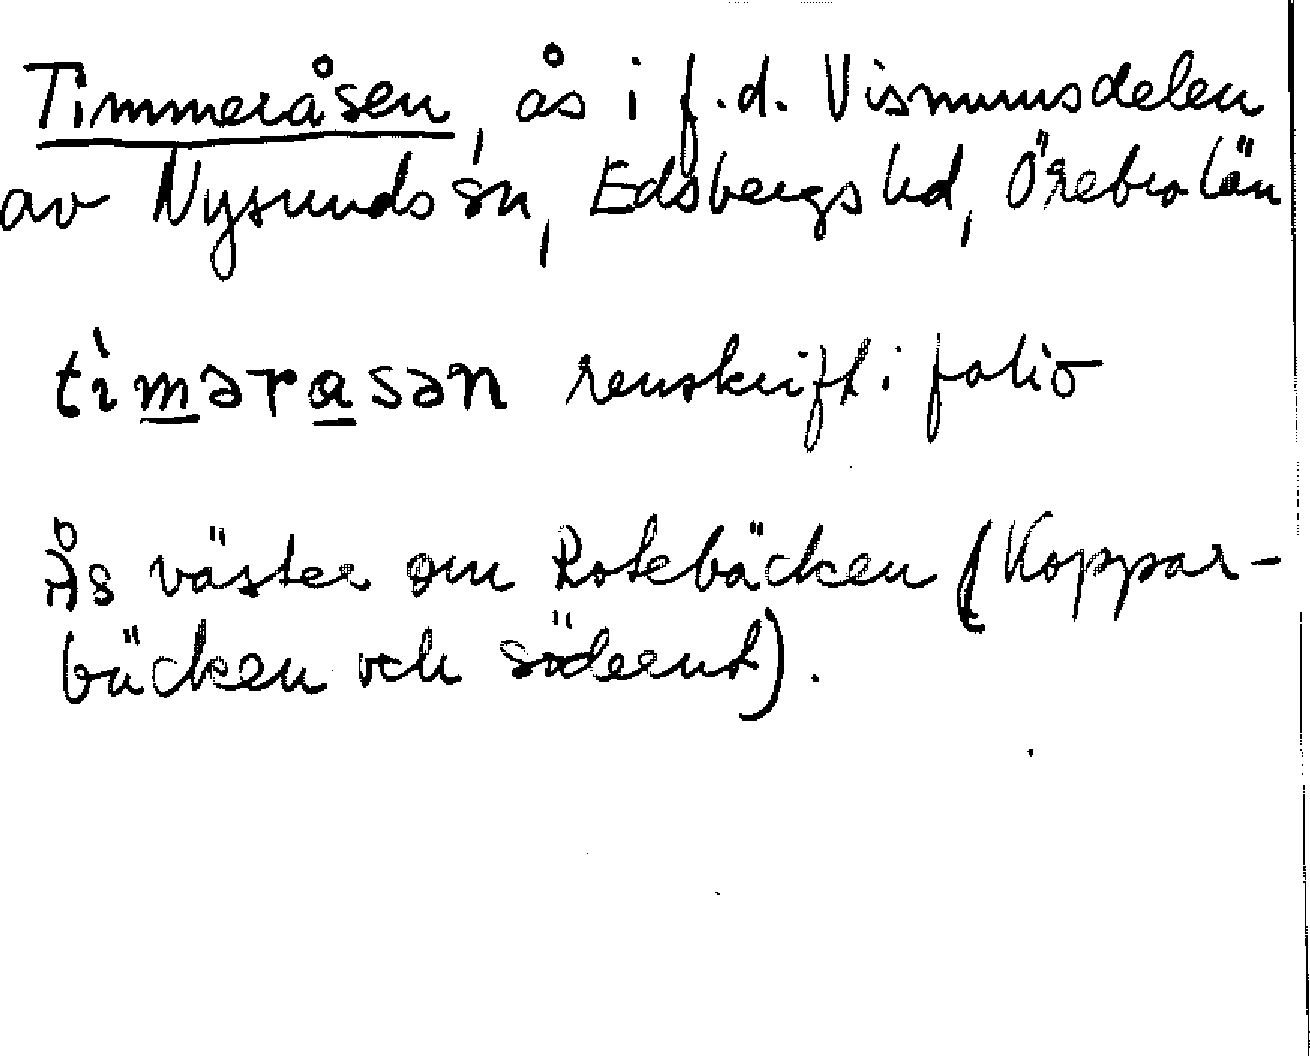 Timmeråsen, ås i f.d. Vismunsdelen
av Nysunds sn, Edsbergs hd, Örebro län
tìmərasən renskrift i folio
Ås väster om Rotebäcken (Koppar-
bäcken och söderut).